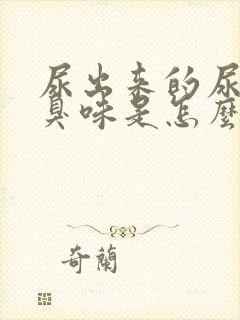 尿出来的尿
臭味是怎麼
奇蘭